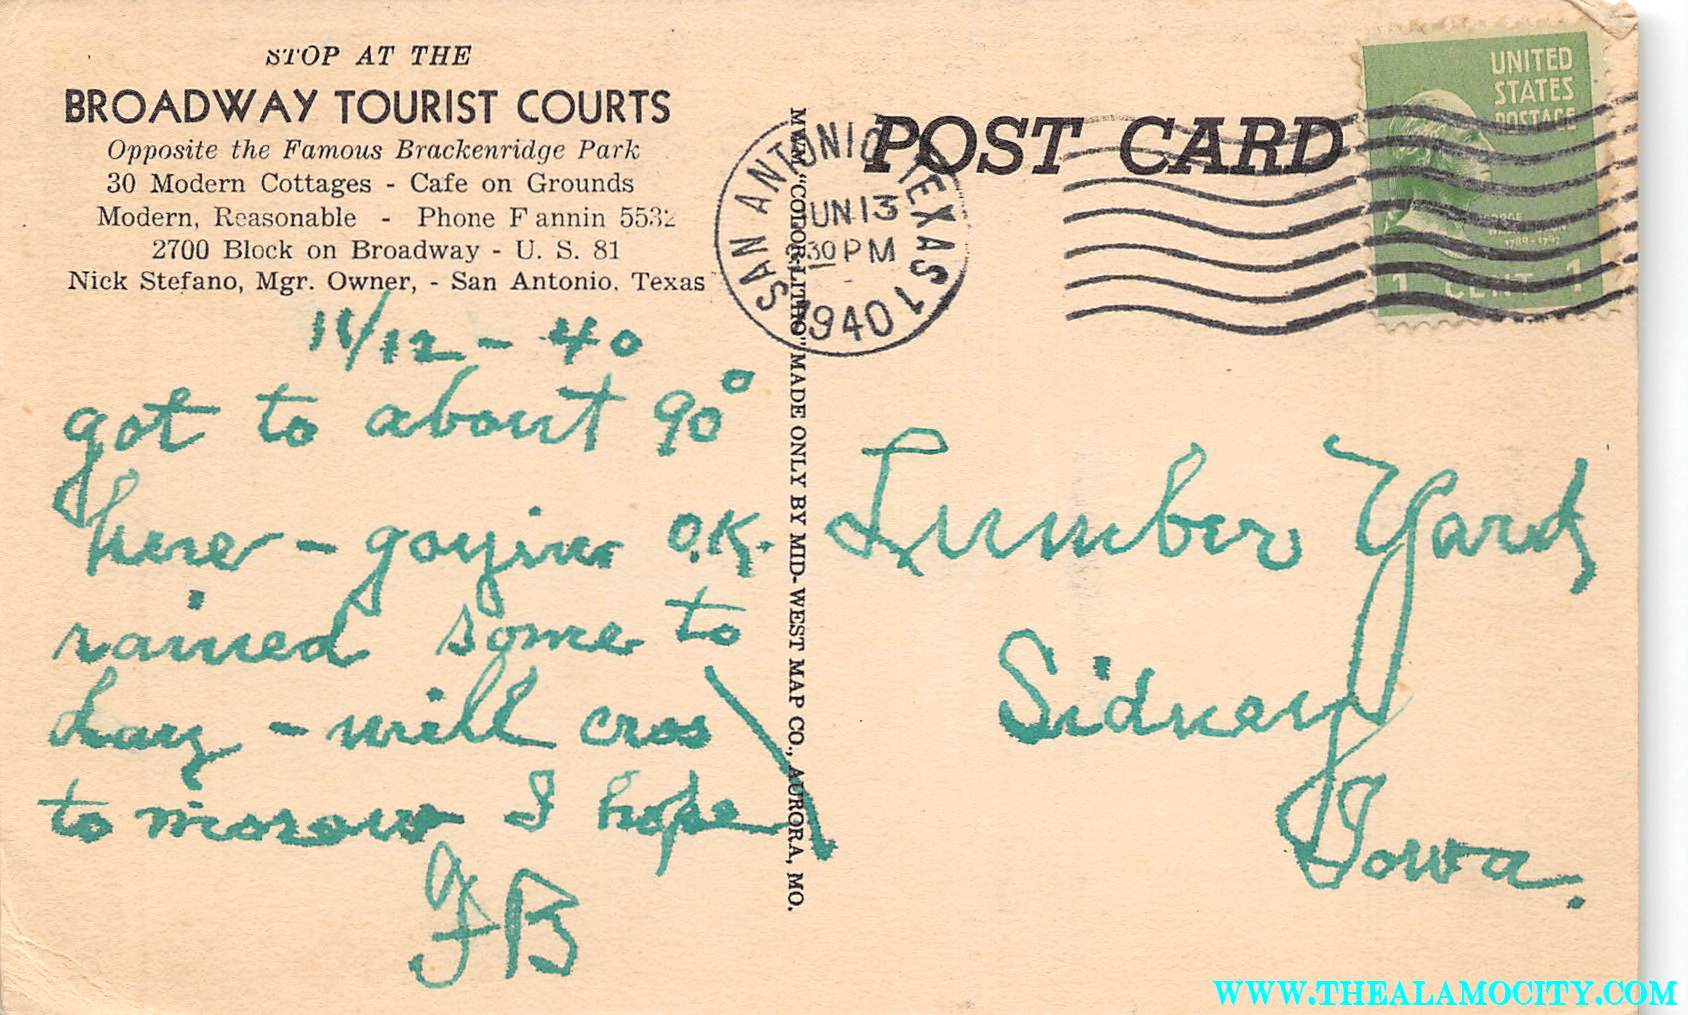 STOP AT THE
BROADWAY TOURIST COURTS
Opposite the Famous Brackenridge Park
30 Modern Cottages - Cafe on Grounds
Modern, Reasonable - Phone Fannin 5532
2700 Block on Broadway - U. S. 81
Nick Stefano, Mgr. Owner, - San Antonio, Texas
11/12 - 40
got to about 90°
here - O.K.
rained some to
day - will cros
to morow I hope
FB
MWM "COLOR-LITHO" MADE ONLY BY MID-WEST MAP CO., AURORA, MO.
POST CARD
SAN ANTONIO TEXAS 1
JUN 13
30 PM
1940
UNITED
STATES
POSTAGE
1789-1797
1 CENT 1
Lumber Yard
Sidney
Iowa.
WWW.THEALAMOCITY.COM